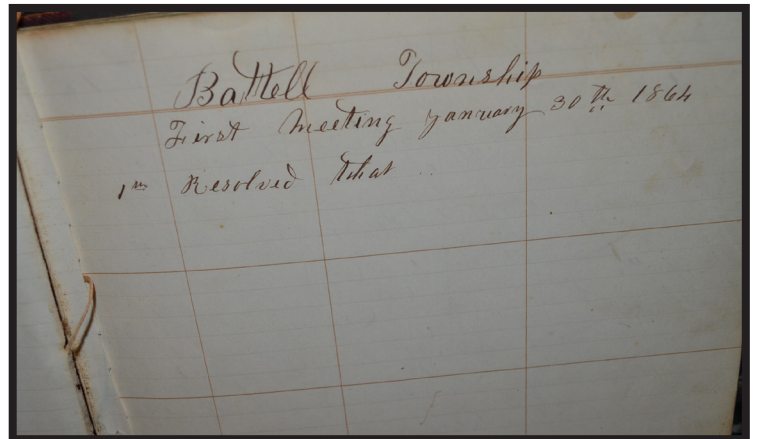 Battell Township
First Meeting January 30th 1864
1st Resolved that